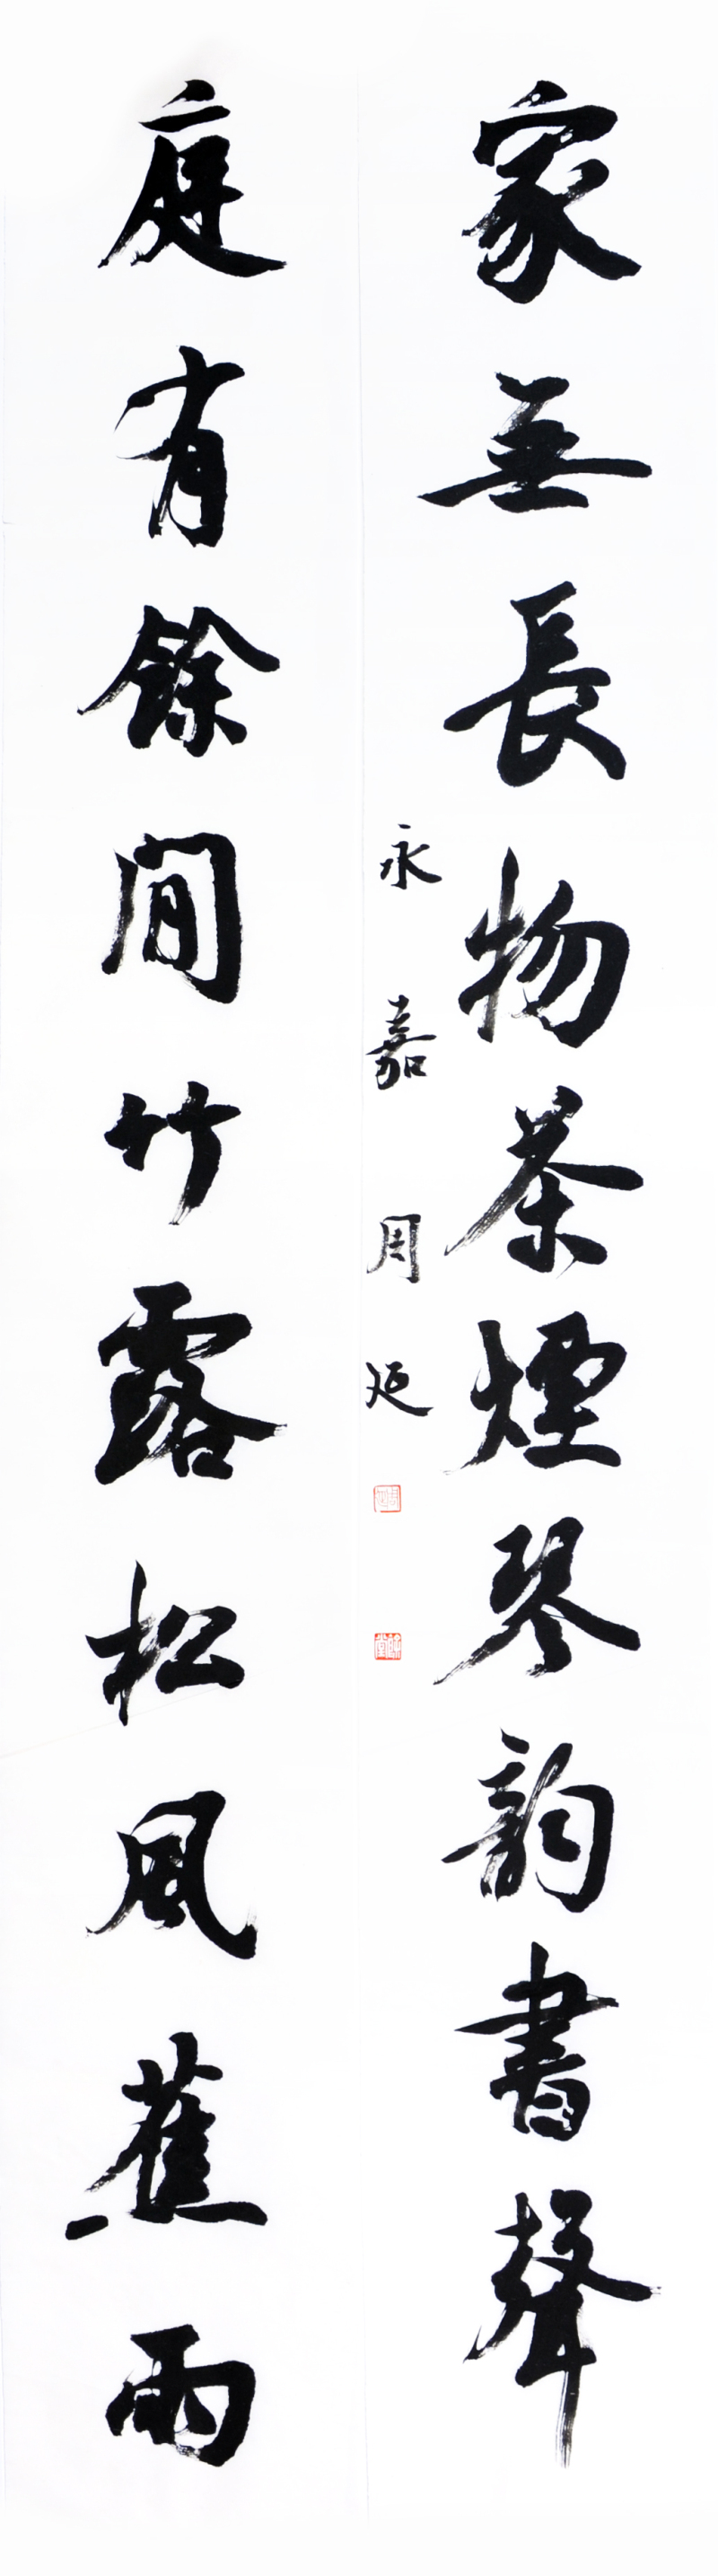 家無長物茶煙琴韵書聲
庭有餘閒竹露松風蕉雨
永嘉周延